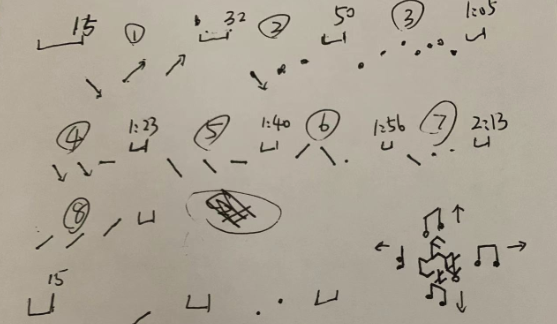 15 ① 32 ② 50 ③ 1:05
④ 1:23 ⑤ 1:40 ⑥ 1:56 ⑦ 2:13
⑧
15